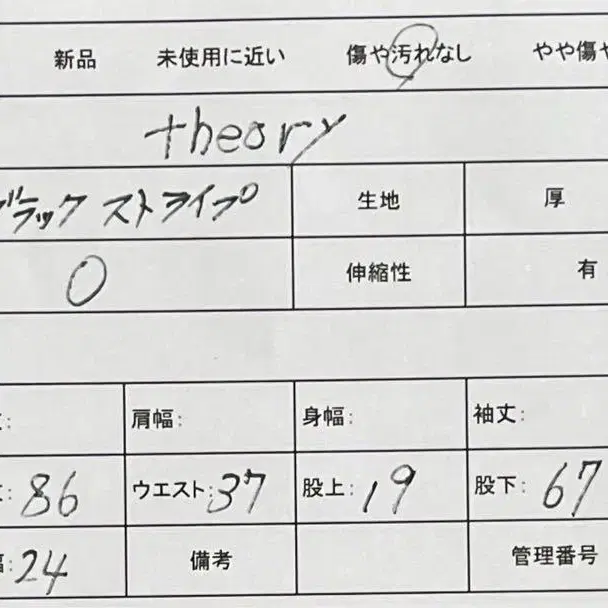 新品 未使用に近い 傷や汚れなし やや傷や
theory
ブラック ストライプ 生地 厚
0 伸縮性 有
肩幅: 身幅: 袖丈:
86 ウエスト:37 股上:19 股下:67
24 備考 管理番号